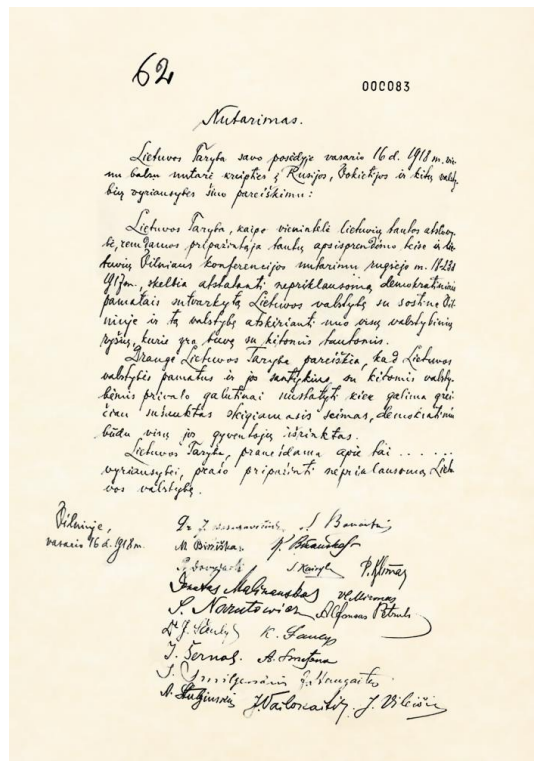 62
000083
Nutarimas.
Lietuvos Taryba savo posėdyje vasario 16 d. 1918 m. vie-
nu balsu nutarė kreipties į Rusijos, Vokietijos ir kitų valsty-
bių vyriausybes šiuo pareiškimu:
Lietuvos Taryba, kaipo vienintelė lietuvių tautos atstovy-
bė, remdamos pripažintąja tautų apsisprendimo teise ir lie-
tuvių Vilniaus konferencijos nutarimu rugsėjo m. 18-23 d.
1917 m., skelbia atstatanti nepriklausomą demokratiniais
pamatais sutvarkytą Lietuvos valstybę su sostine Vil-
niuje ir tą valstybę atskirianti nuo visų valstybinių
ryšių, kurie yra buvę su kitomis tautomis.
Drauge Lietuvos Taryba pareiškia, kad Lietuvos
valstybės pamatus ir jos santykius su kitomis valsty-
bėmis privalo galutinai nustatyti kiek galima grei-
čiau sušauktas steigiamasis seimas, demokratiniu
būdu visų jos gyventojų išrinktas.
Lietuvos Taryba, pranešdama apie tai . . . . . .
vyriausybei, prašo pripažinti nepriklausomą Lietu-
vos valstybę.
Vilniuje,
vasario 16 d. 1918 m.
Dr. J. S. Banaitis
M. Biržiška K. Bizauskas
S. Kairys P. Klimas
Donatas Malinauskas Vl. Mironas
S. Narutowicz Alfonsas Petrulis
Dr J. Šaulys K. Šaulys
J. Šernas A. Smetona
J. Smilgevičius J. Staugaitis
A. Stulginskis J. Vailokaitis J. Vileišis